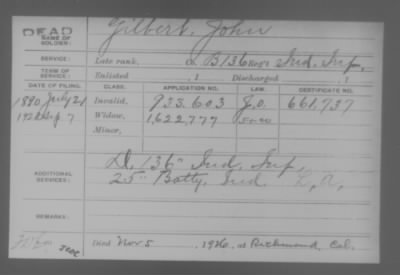 DEAD
NAME OF SOLDIER: Gilbert, John
SERVICE: Late rank, B 136 REG'T Ind. Inf.
TERM OF SERVICE: Enlisted , 1 Discharged , 1
DATE OF FILING. CLASS. APPLICATION NO. LAW. CERTIFICATE NO.
1890 July 21 Invalid, 933.603 G.O. 661,737
7 Widow, 1,622,777
Minor,
ADDITIONAL SERVICES: D. 136" Ind. Inf.
25" Batty. Ind. L.A.
REMARKS:
Died Nov 5, 1926, at Richmond, Cal.